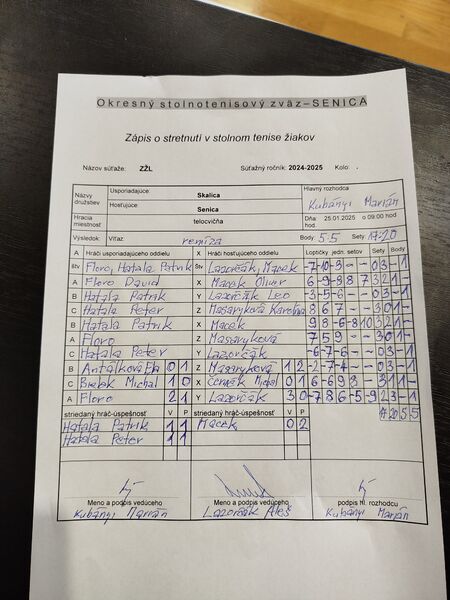 Okresný stolnotenisový zväz–SENICA
Zápis o stretnutí v stolnom tenise žiakov
Názov súťaže: ZŽL Súťažný ročník: 2024-2025 Kolo: .
Názvy družstiev Usporiadajúce: Skalica Hlavný rozhodca
Hosťujúce: Senica Kubányi Marián
Hracia miestnosť telocvičňa Dňa: 25.01.2025 o 09:00 hod
Výsledok: Víťaz: remíza Body: 5:5 Sety: 17:20
A Hráči usporiadajúceho oddielu X Hráči hosťujúceho oddielu Loptičky jedn. setov Sety Body
Štv Floro, Hatala Patrik Štv Lazorčák, Macek -7 -10 -3 - - 0 3 - 1
A Floro David X Macek Oliver 6 -9 -8 8 7 3 2 1 -
B Hatala Patrik Y Lazorčák Leo -3 -5 -6 - - 0 3 - 1
C Hatala Peter Z Masaryková Karolína 8 6 7 - - 3 0 1 -
B Hatala Patrik X Macek 9 8 -6 -8 10 3 2 1 -
A Floro Z Masaryková 7 5 9 - - 3 0 1 -
C Hatala Peter Y Lazorčák -6 -7 -6 - - 0 3 - 1
B Antálková Ela 0 1 Z Masaryková 1 2 -2 -7 -4 - - 0 3 - 1
C Bielek Michal 1 0 X 0 1 6 -6 9 8 - 3 1 1 -
A Floro 2 1 Y Lazorčák 3 0 -7 8 6 -5 -9 2 3 - 1
striedaný hráč-úspešnosť V P striedaný hráč-úspešnosť V P 17 20 5 5
Hatala Patrik 1 1 Macek 0 2
Hatala Peter 1 1
Meno a podpis vedúceho Meno a podpis vedúceho podpis hl. rozhodcu
Kubányi Marián Lazorčák Aleš Kubányi Marján